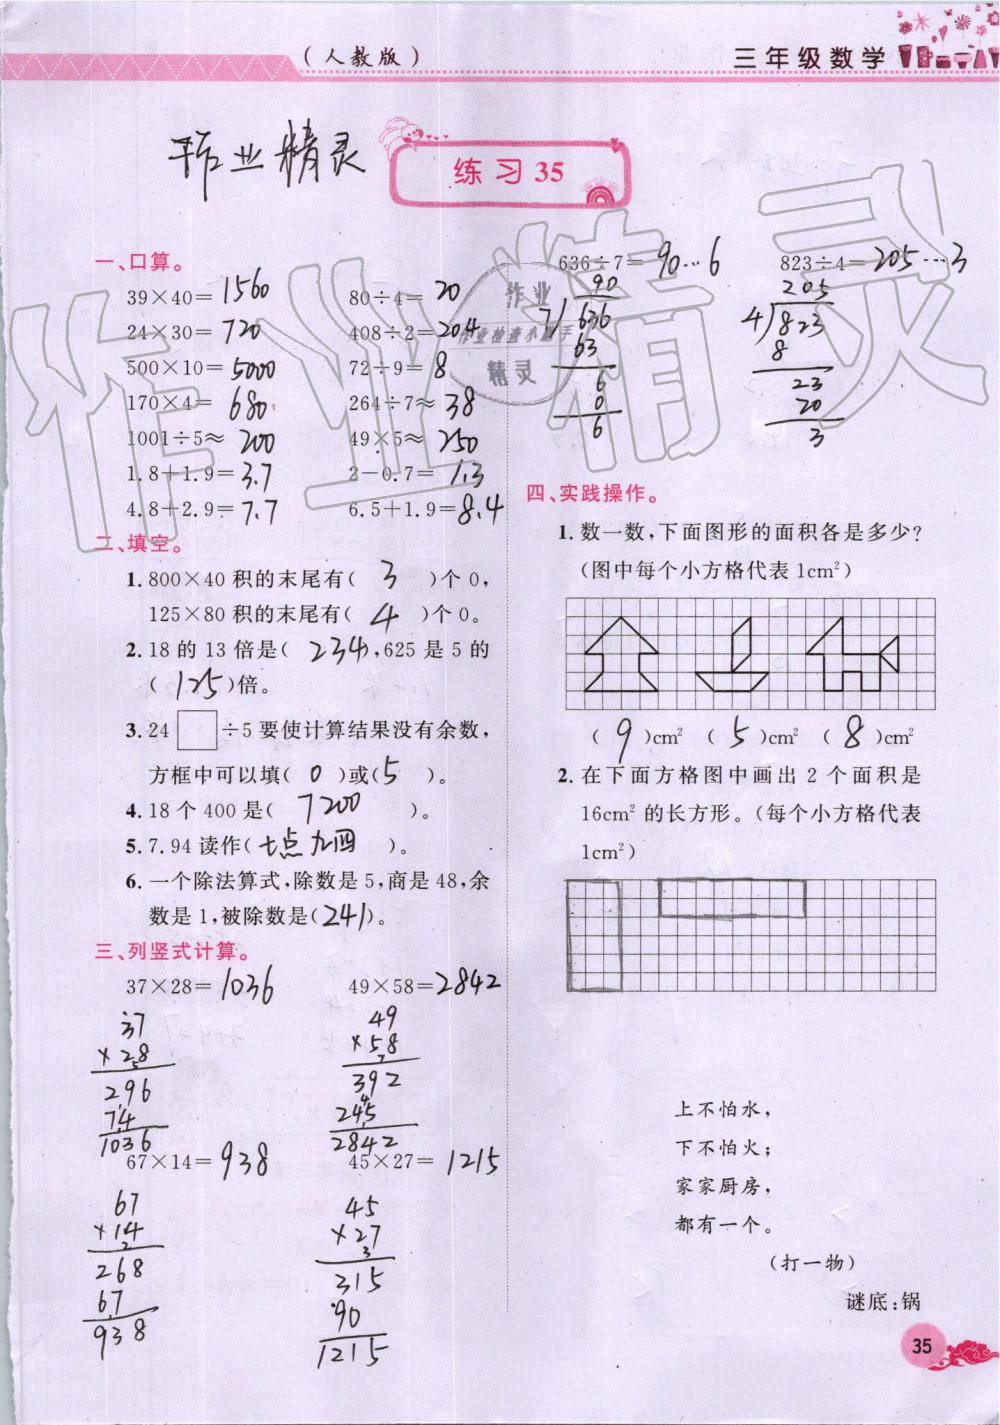 (人教版)
三年级数学
作业精灵
练习 35
一、口算。
39×40= 1560
80÷4= 20
24×30= 720
408÷2= 204
500×10= 5000
72÷9= 8
170×4= 680
264÷7≈ 38
1001÷5≈ 200
49×5≈ 250
1.8+1.9= 3.7
2-0.7= 1.3
4.8+2.9= 7.7
6.5+1.9= 8.4
二、填空。
1. 800×40 积的末尾有( 3 )个 0,
125×80 积的末尾有( 4 )个 0。
2. 18 的 13 倍是( 234 ),625 是 5 的
( 125 )倍。
3. 24□÷5 要使计算结果没有余数,
方框中可以填( 0 )或( 5 )。
4. 18 个 400 是( 7200 )。
5. 7.94 读作( 七点九四 )。
6. 一个除法算式,除数是 5,商是 48,余
数是 1,被除数是( 241 )。
三、列竖式计算。
37×28= 1036
49×58= 2842
37
×28
5
296
74
1036
49
×58
7
392
245
2842
67×14= 938
45×27= 1215
67
×14
2
268
67
938
45
×27
3
315
90
1215
636÷7= 90…6
823÷4= 205…3
90
7)636
63
6
0
6
205
4)823
8
23
20
3
四、实践操作。
1. 数一数,下面图形的面积各是多少?
(图中每个小方格代表 1cm²)
( 9 )cm² ( 5 )cm² ( 8 )cm²
2. 在下面方格图中画出 2 个面积是
16cm² 的长方形。(每个小方格代表
1cm²)
上不怕水,
下不怕火;
家家厨房,
都有一个。
(打一物)
谜底:锅
35
作业精灵
作业
作业检查小助手
精灵